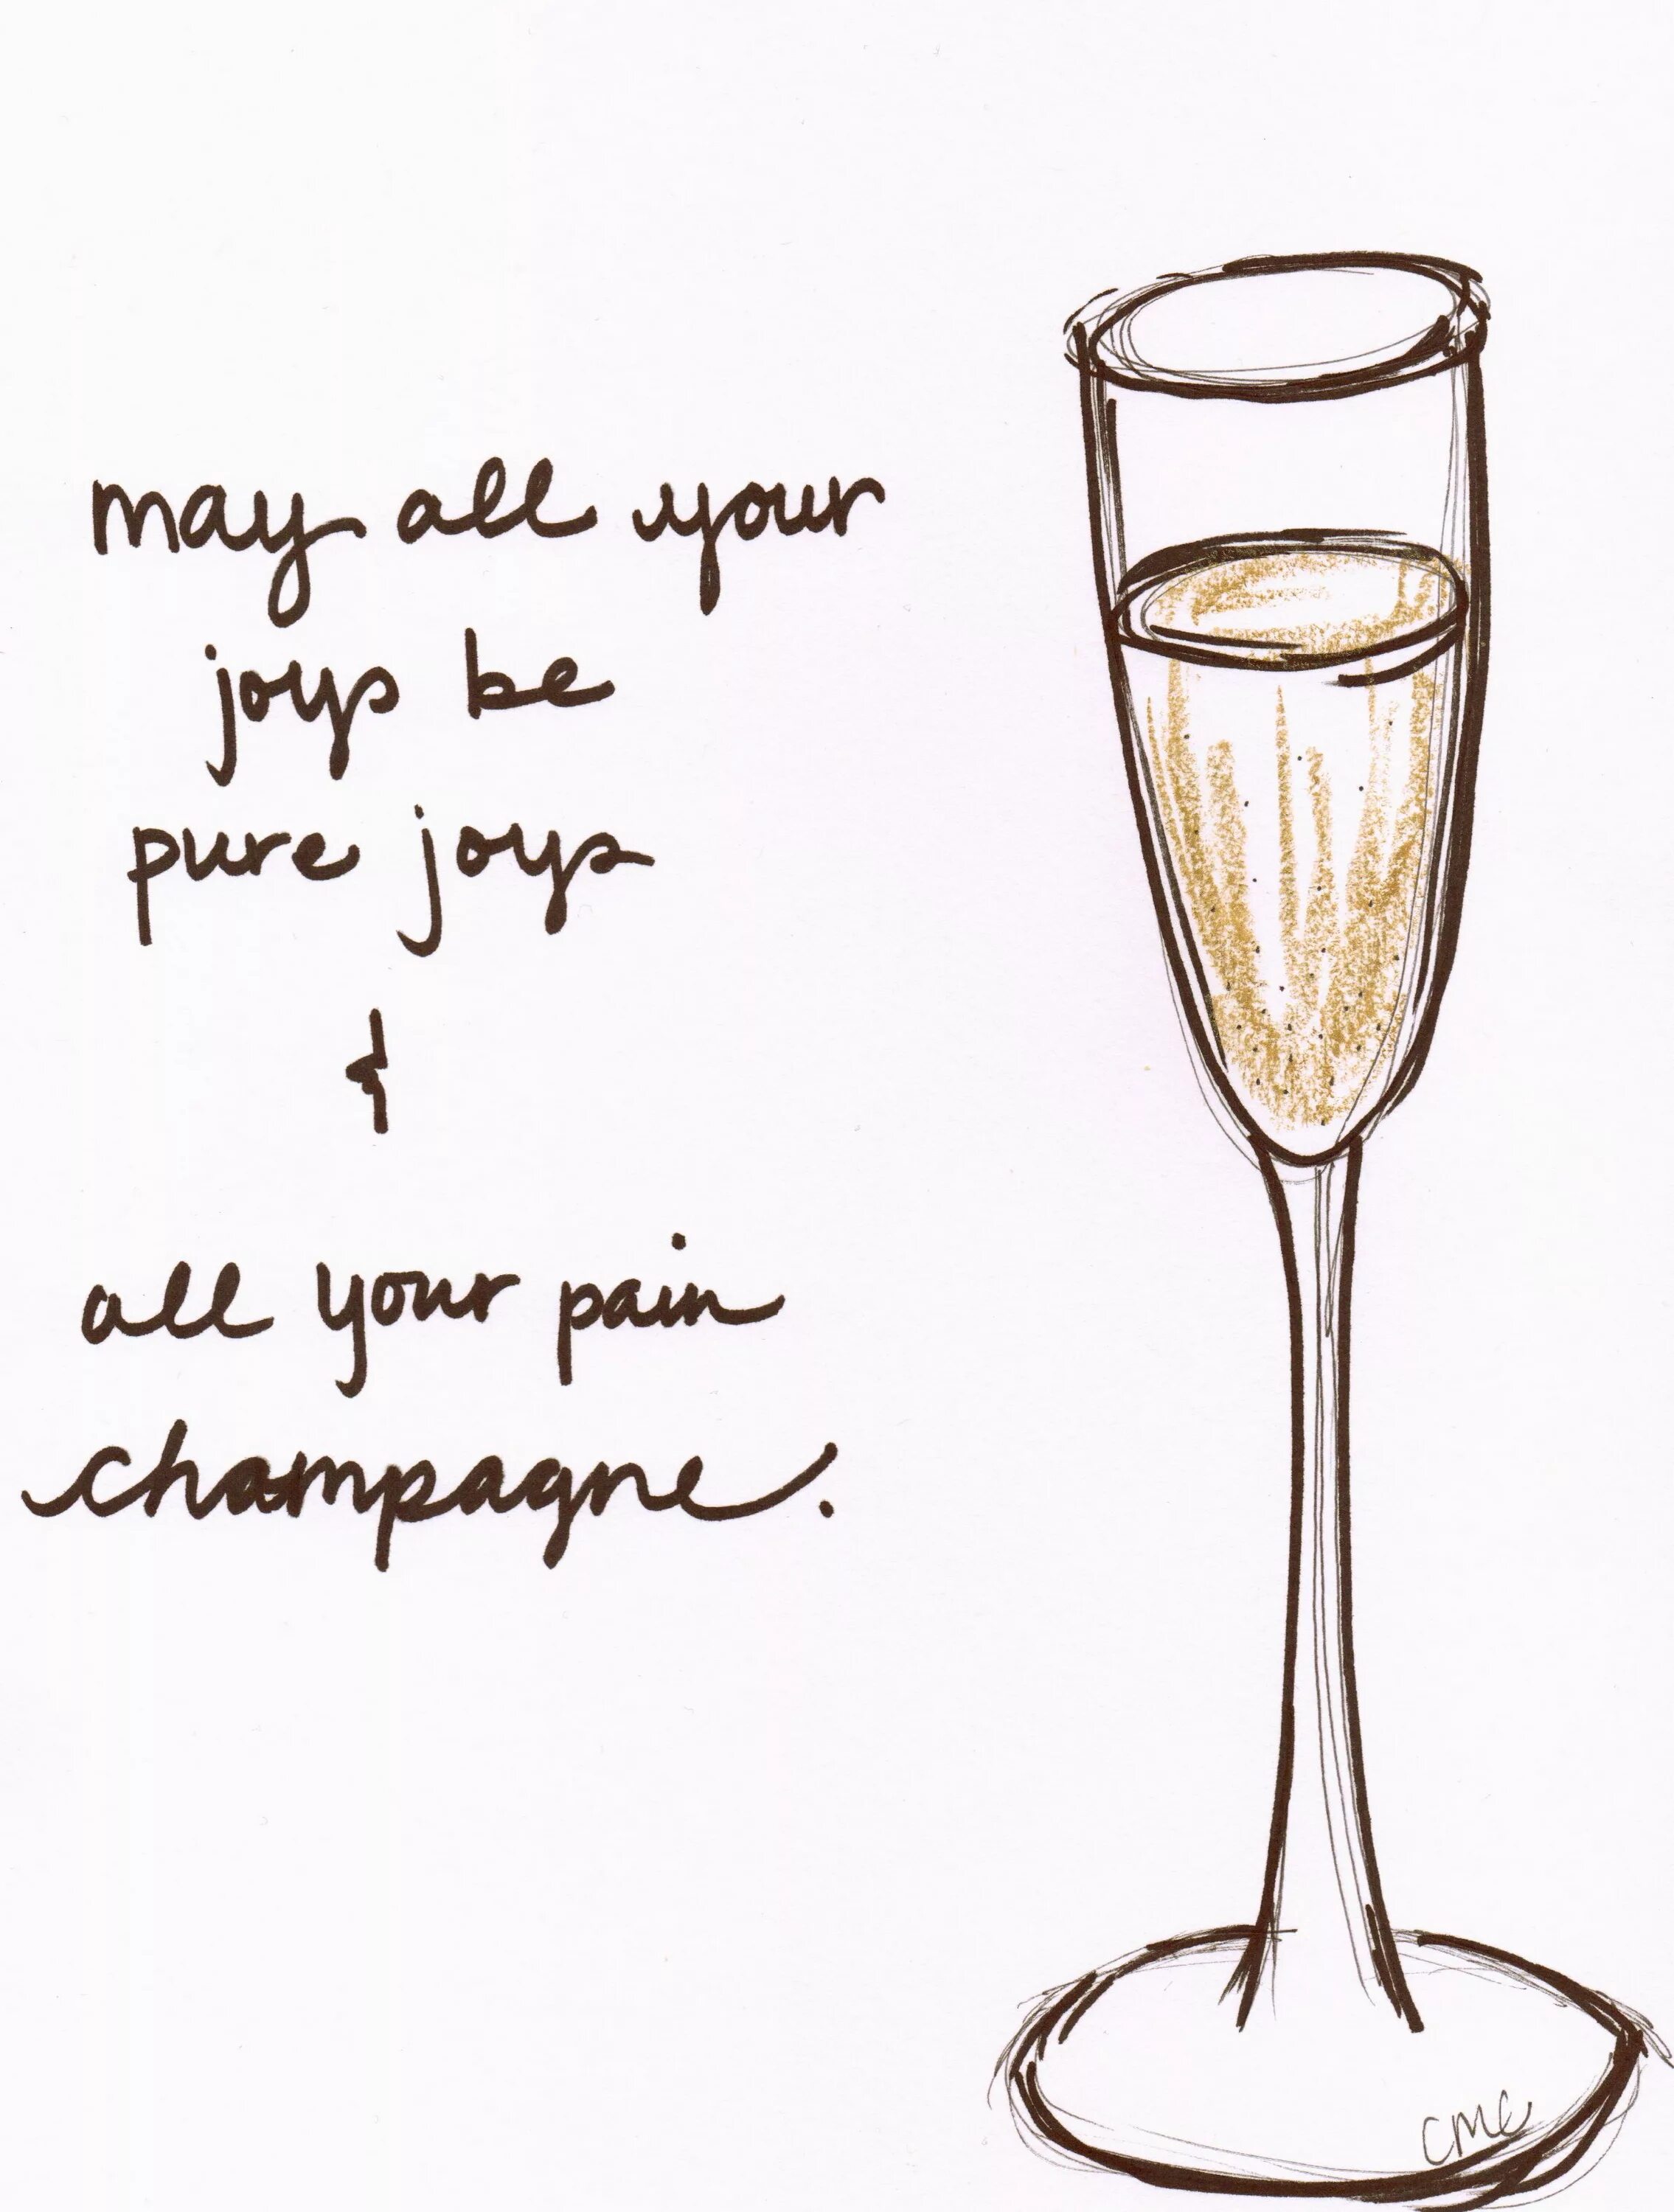 may all your
joys be
pure joys
&
all your pain
champagne.
CMC